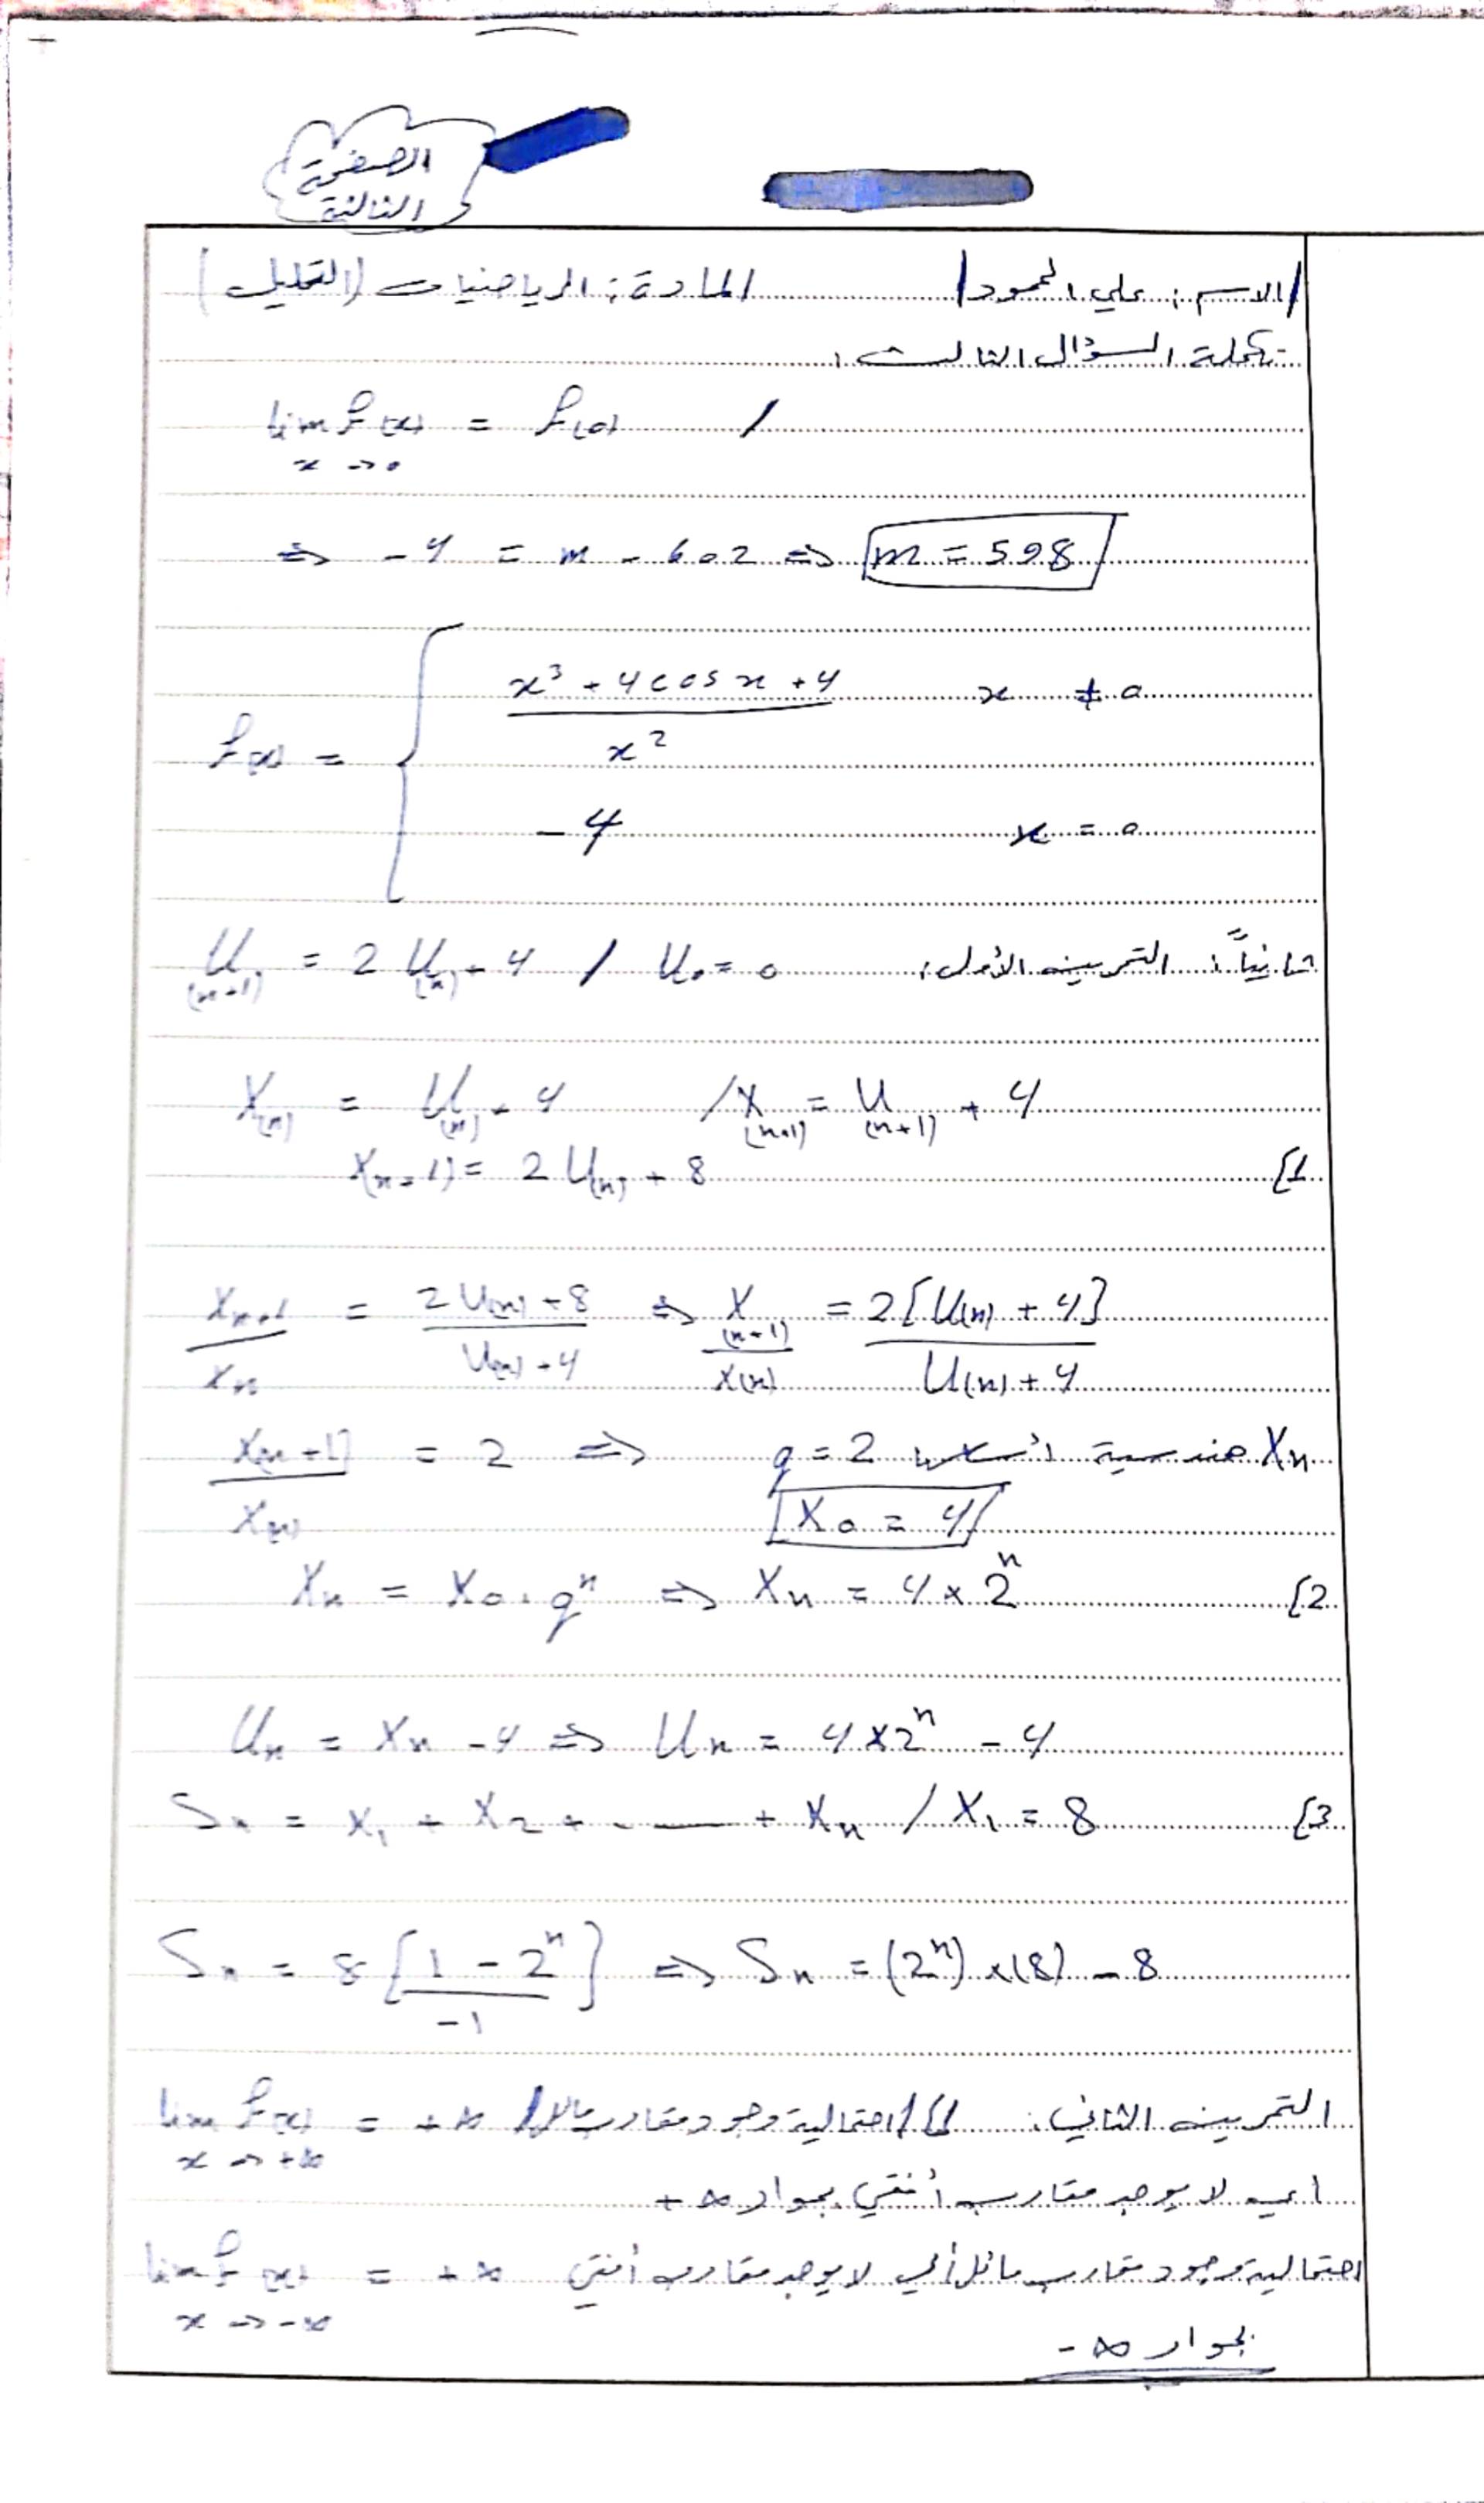 الصفحة
الثالثة
الاسم: علي المحمود / المادة: الرياضيات (التحليل)
تكملة السؤال الثالث:
lim f(x) = f(0) /
x → 0
⇒ -4 = m - 602 ⇒ m = 598
f(x) = { x³ + 4cos x + 4 / x²   x ≠ 0
-4   x = 0
ثانياً: التمرين الأول: U(n+1) = 2 U(n) + 4 / U₀ = 0
X(n) = U(n) + 4 / X(n+1) = U(n+1) + 4
1] X(n+1) = 2 U(n) + 8
Xn+1 / Xn = 2U(n) + 8 / U(n) + 4 ⇒ X(n+1) / X(n) = 2[U(n) + 4] / U(n) + 4
X(n+1) / X(n) = 2 ⇒ Xn هندسية أساسها q = 2
X₀ = 4
2] Xn = X₀ . qⁿ ⇒ Xn = 4 × 2ⁿ
Un = Xn - 4 ⇒ Un = 4 × 2ⁿ - 4
3] Sn = X₁ + X₂ + ... + Xn / X₁ = 8
Sn = 8 [1 - 2ⁿ / -1] ⇒ Sn = (2ⁿ) × (8) - 8
التمرين الثاني: احتمالية وجود مقارب مائل / lim f(x) = +∞
x → +∞
أي لا يوجد مقارب أفقي بجوار +∞
احتمالية وجود مقارب مائل أي لا يوجد مقارب أفقي lim f(x) = +∞
x → -∞
بجوار -∞